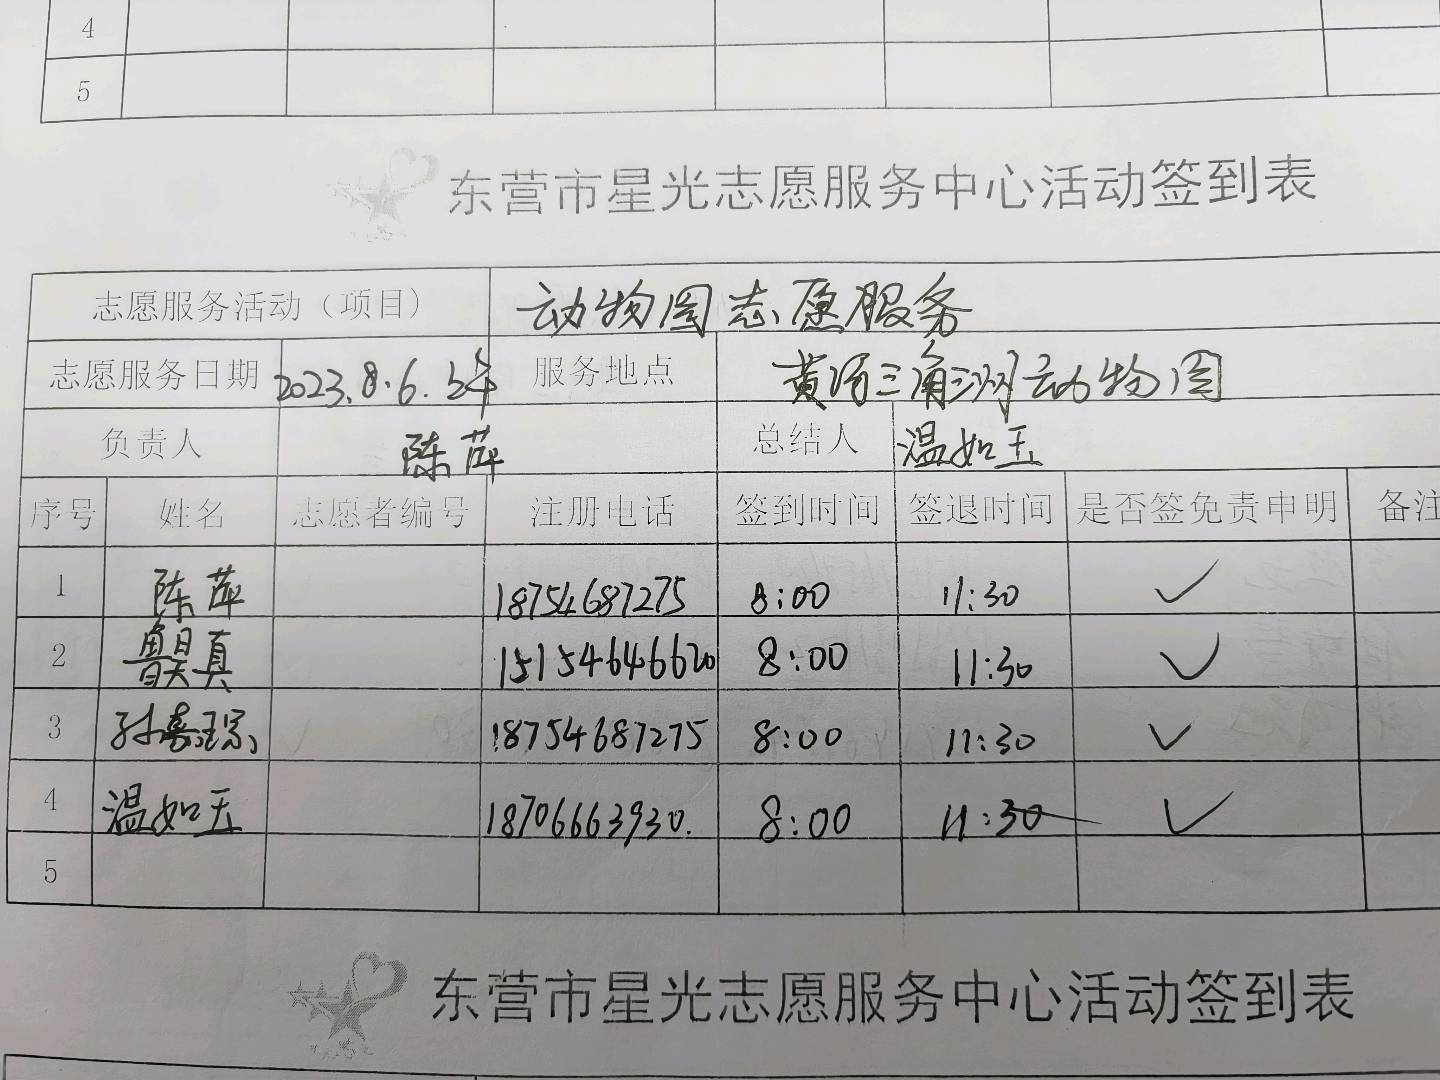 4
5
东营市星光志愿服务中心活动签到表
志愿服务活动（项目） 动物园志愿服务
志愿服务日期 2023.8.6.上午 服务地点 黄河三角洲动物园
负责人 陈萍 总结人 温如玉
序号 姓名 志愿者编号 注册电话 签到时间 签退时间 是否签免责申明 备注
1 陈萍 18754687275 8:00 11:30 ✓
2 真 15154646620 8:00 11:30 ✓
3 孙嘉琮 18754687275 8:00 11:30 ✓
4 温如玉 18706663930. 8:00 11:30 ✓
5
东营市星光志愿服务中心活动签到表